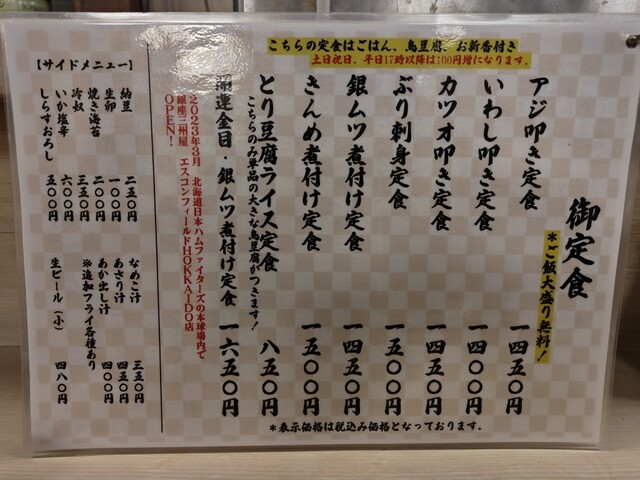 こちらの定食はごはん、鳥豆腐、お新香付き
土日祝日、平日17時以降は100円増になります。
御定食
*ご飯大盛り無料!
アジ叩き定食 一四五〇円
いわし叩き定食 一四〇〇円
カツオ叩き定食 一四五〇円
ぶり刺身定食 一五〇〇円
銀ムツ煮付け定食 一四五〇円
きんめ煮付け定食 一五〇〇円
とり豆腐ライス定食 八五〇円
こちらのみ単品の大きな鳥豆腐がつきます!
開運金目・銀ムツ煮付け定食 一六五〇円
2023年3月 北海道日本ハムファイターズの本球場内で
銀座三州屋 エスコンフィールドHOKKAIDO店
OPEN!
【サイドメニュー】
納豆 二五〇円
生卵 一〇〇円
焼き海苔 二〇〇円
冷奴 三五〇円
いか塩辛 六〇〇円
しらすおろし 五〇〇円
なめこ汁 三五〇円
あさり汁 四五〇円
あか出し汁 四〇〇円
*追加フライ各種あり
生ビール(小) 四八〇円
*表示価格は税込み価格となっております。